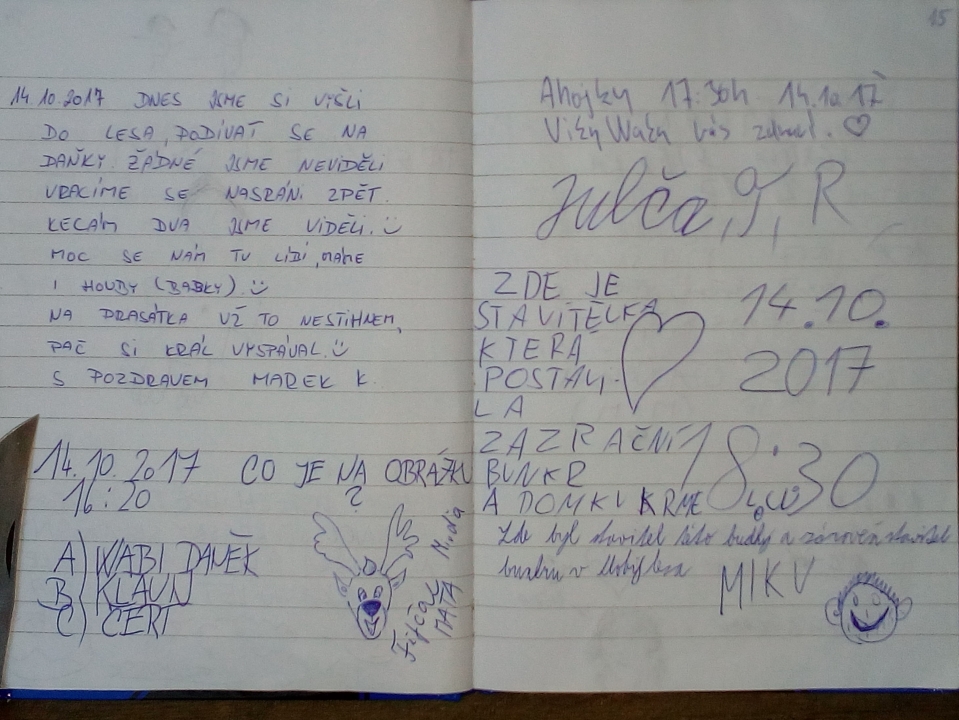 14.10.2017 DNES JSME SI VYŠLI
DO LESA, PODÍVAT SE NA
DAŇKY. ŽÁDNÉ JSME NEVIDĚLI
VRACÍME SE NASRÁNI ZPĚT.
KECÁM DVA JSME VIDĚLI. :)
MOC SE NÁM TU LÍBÍ, MÁME
I HOUBY (BABKY). :)
NA PRASÁTKA UŽ TO NESTIHNEM,
PAČ SI KRÁL VYSPÁVAL. :)
S POZDRAVEM MAREK K.
14.10.2017 CO JE NA OBRÁZKU
16:20 ?
A) WABI DANĚK
B) KLAUN
C) ČERT
MÁŤA
15
Ahojky 17:30h 14.10.17
vás zdraví. ♡
Julča, J, R
ZDE JE
STAVITELKA
KTERÁ
POSTAVI-
LA
ZAZRAČNÍ
BUNKR
A DOMKU KRMELCŮ
14.10.
2017
18:30
Zde byl stavitel této budky a zároveň stavitel
bunkru v
MIKU